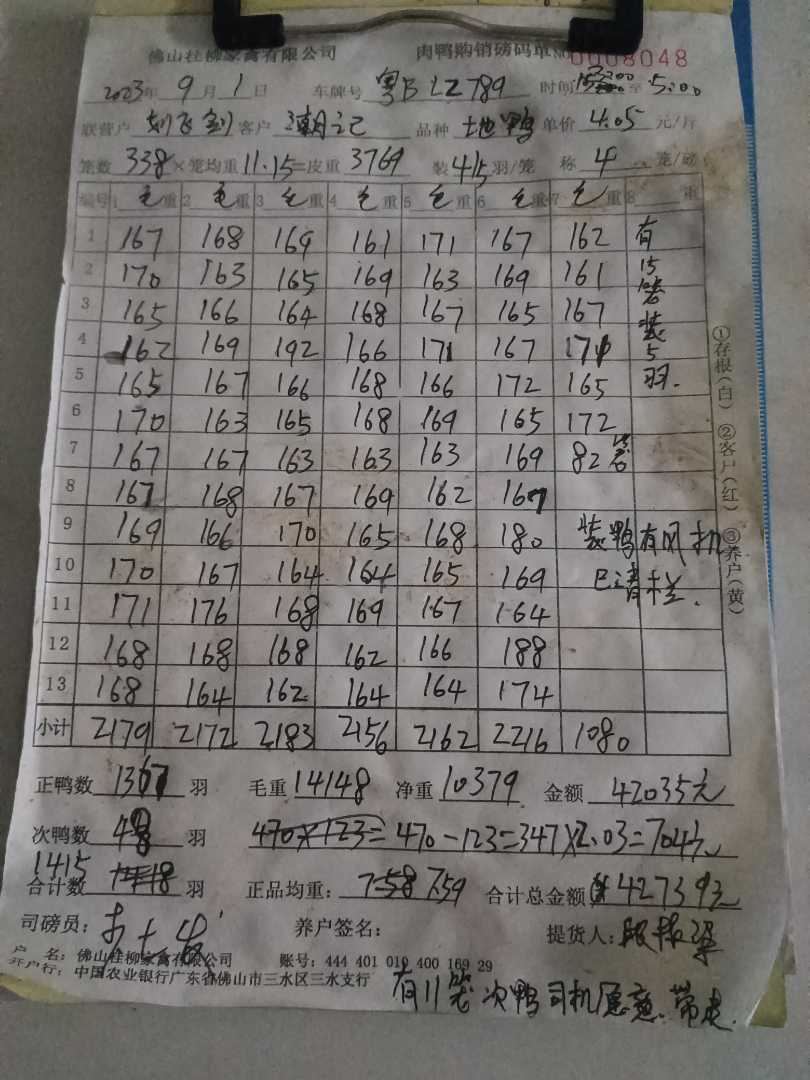 佛山桂柳家禽有限公司 肉鸭购销磅码单 NO 0008048
2023年 9月 1日 车牌号 粤B LZ789 时间 至 5:00
联营户 刘飞剑 客户 潮记 品种 土地鸭 单价 4.05 元/斤
笼数 338 ×笼均重 11.15 =皮重 3769 装 4/5 羽/笼 称 4 笼/磅
编号 1 毛重 2 毛重 3 毛重 4 毛重 5 毛重 6 毛重 7 毛重 8 重
1 167 168 169 161 171 167 162 有
2 170 163 165 169 163 169 161 15笼
3 165 166 164 168 167 165 167 装
4 162 169 192 166 171 167 171 5
5 165 167 166 168 166 172 165 羽.
6 170 163 165 168 169 165 172
7 167 167 163 163 163 169 82
8 167 168 167 169 162 167
9 169 166 170 165 168 180 装鸭有风机
10 170 167 164 164 165 169 已清栏.
11 171 176 168 169 167 164
12 168 168 168 162 166 188
13 168 164 162 164 164 174
小计 2179 2172 2183 2156 2162 2216 1080
正鸭数 1367 羽 毛重 14148 净重 10379 金额 42035元
次鸭数 48 羽 470×123= 470-123=347×2.03=704元
合计数 1415 羽 正品均重: 7.59 合计总金额 42739元
司磅员: 养户签名: 提货人:
户 名: 佛山桂柳家禽有限公司 账号: 444 401 010 400 169 29
开户行: 中国农业银行广东省佛山市三水区三水支行
有11笼次鸭司机愿意带走.
①存根(白) ②客户(红) ③养户(黄)